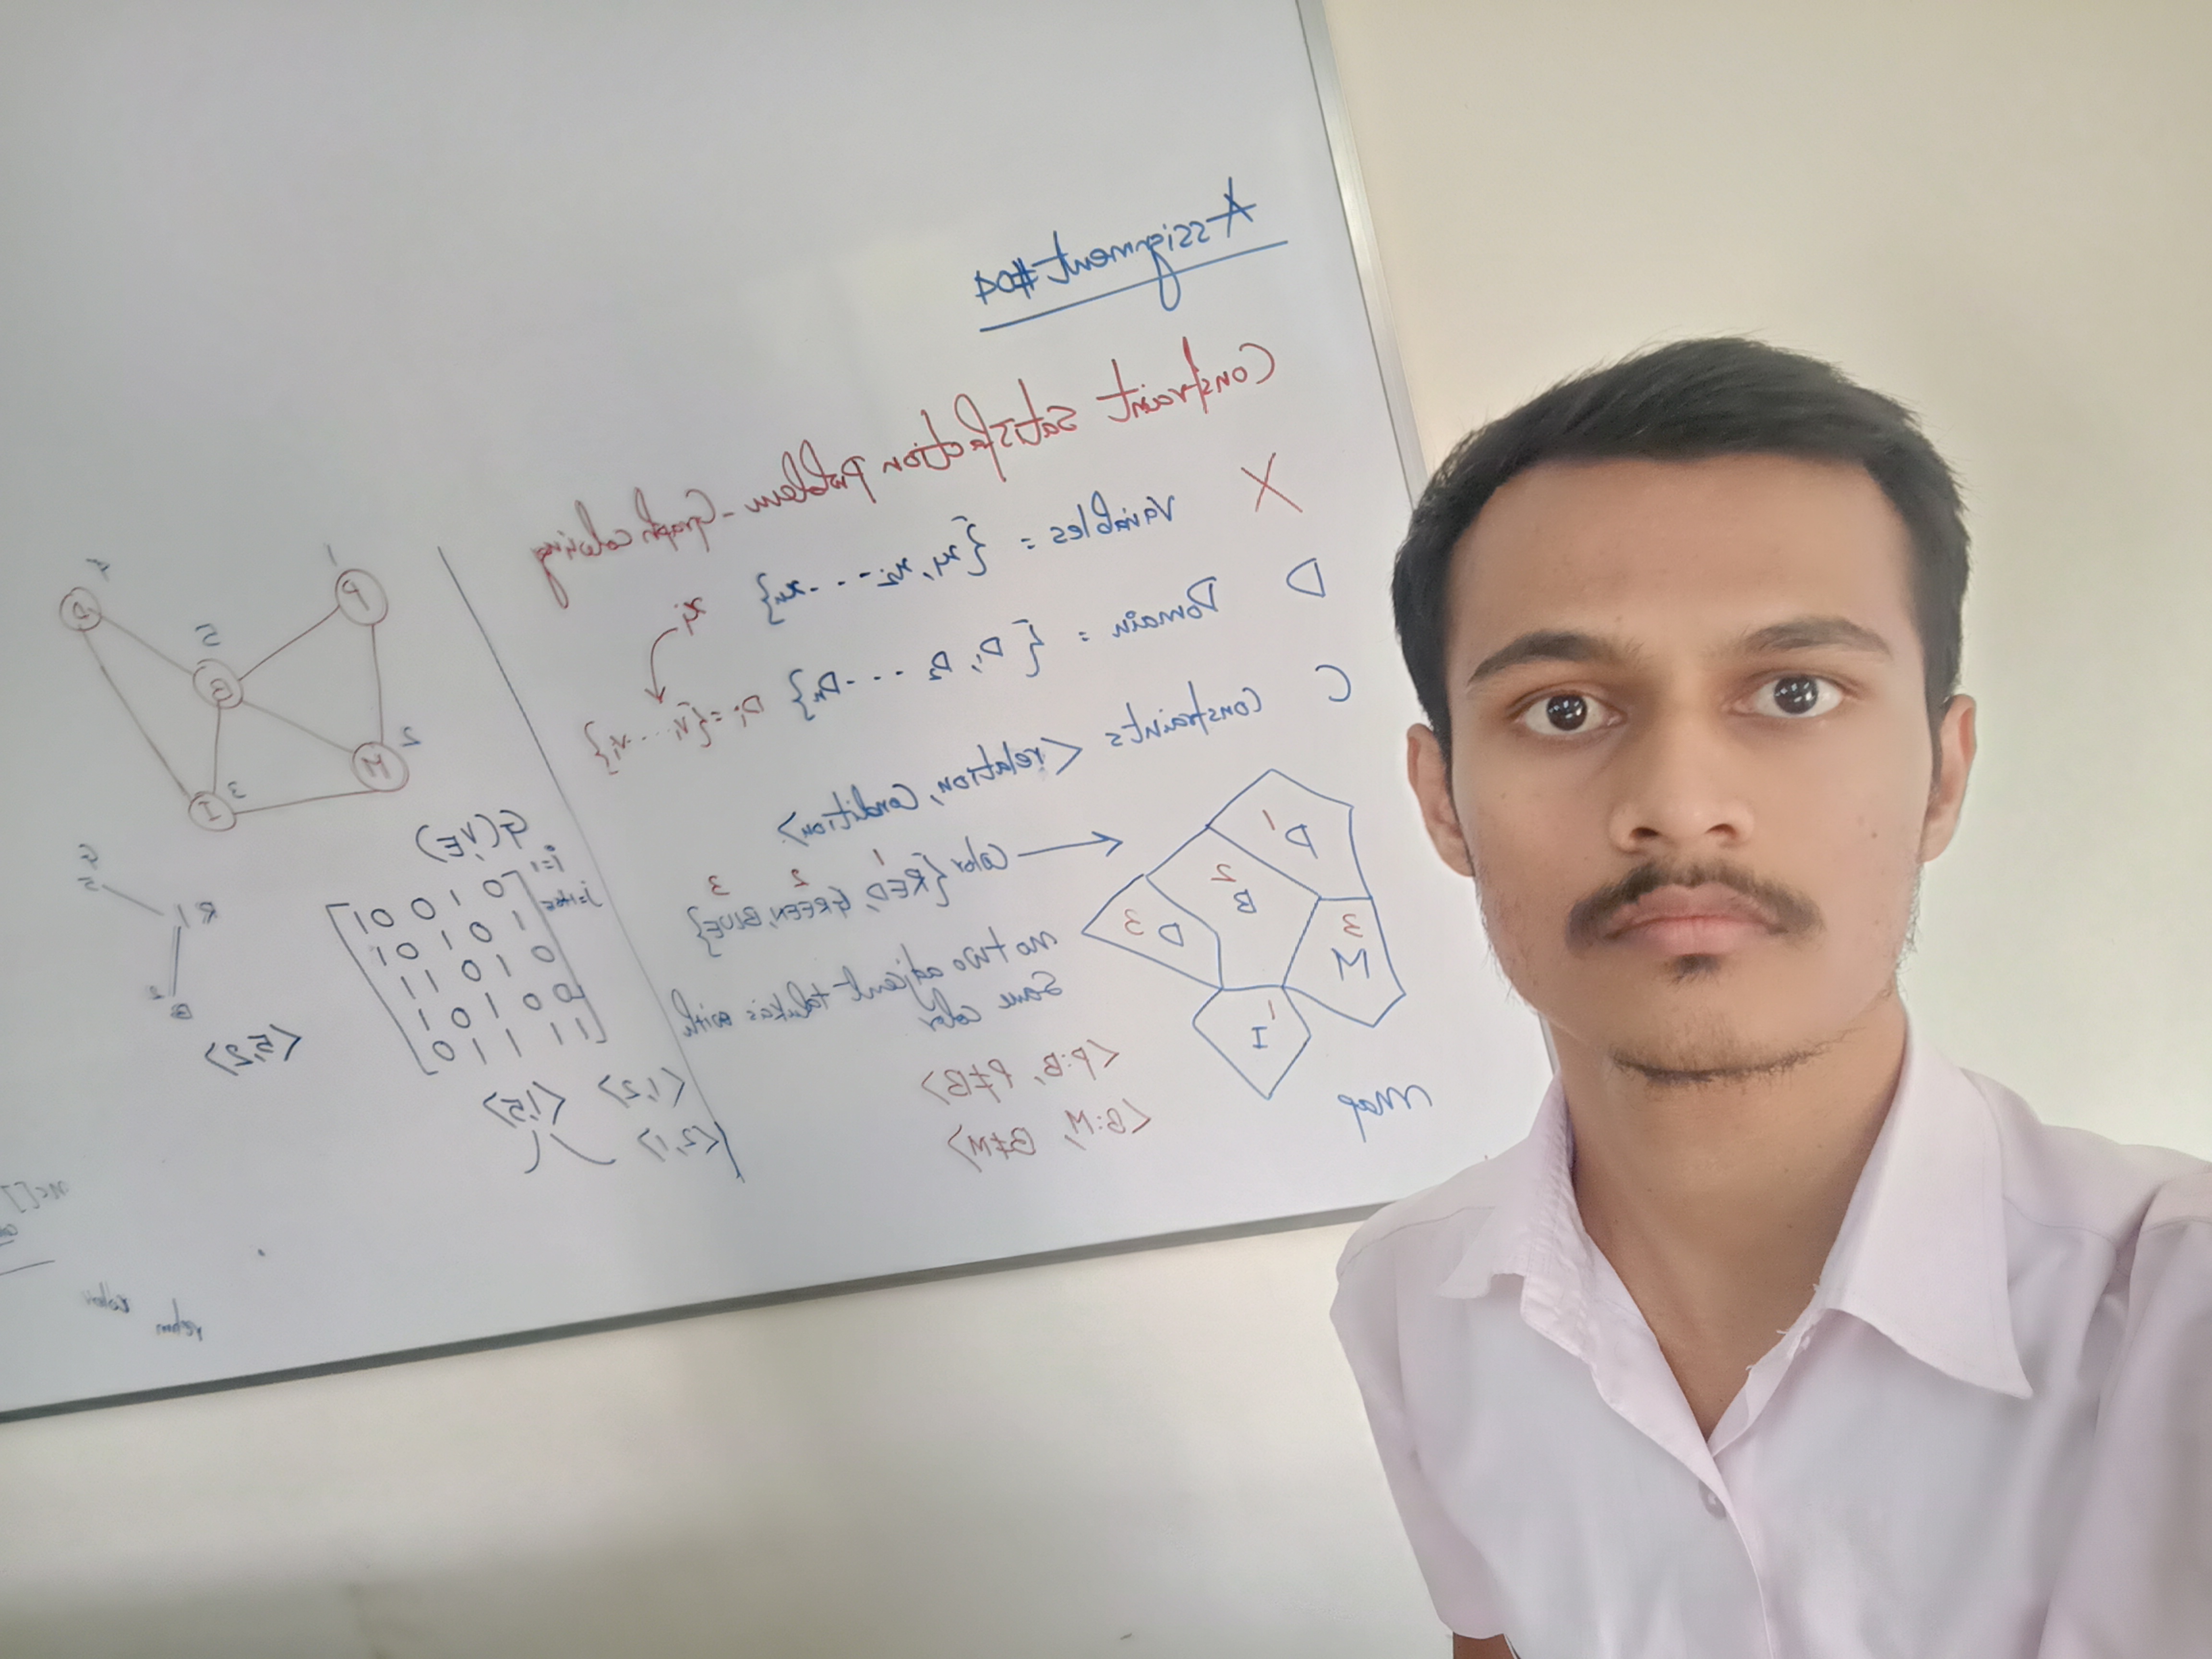 Assignment #04
Constraint Satisfaction Problem - Graph coloring
X Variables = {x1, x2 ----xn}
xi
D Domain = {D1, D2 ----Dn} Di = {v1 ...vi}
C Constraints <relation, Condition>
Color {RED, GREEN, BLUE}
1 2 3
no two adjcent talukas with
same color
<P:B, P≠B>
<B:M, B≠M>
P 1
B 2
D 3
M 3
I 1
Map
1
P
5
B
4
D
M 2
I 3
G(V,E)
i=1
0 1 0 0 1
1 0 1 0 1
0 1 0 1 1
0 0 1 0 1
1 1 1 1 0
<1,2> <1,5>
<2,1>
<5,2>
R 1
4
5
2
B
nc[]
color
return